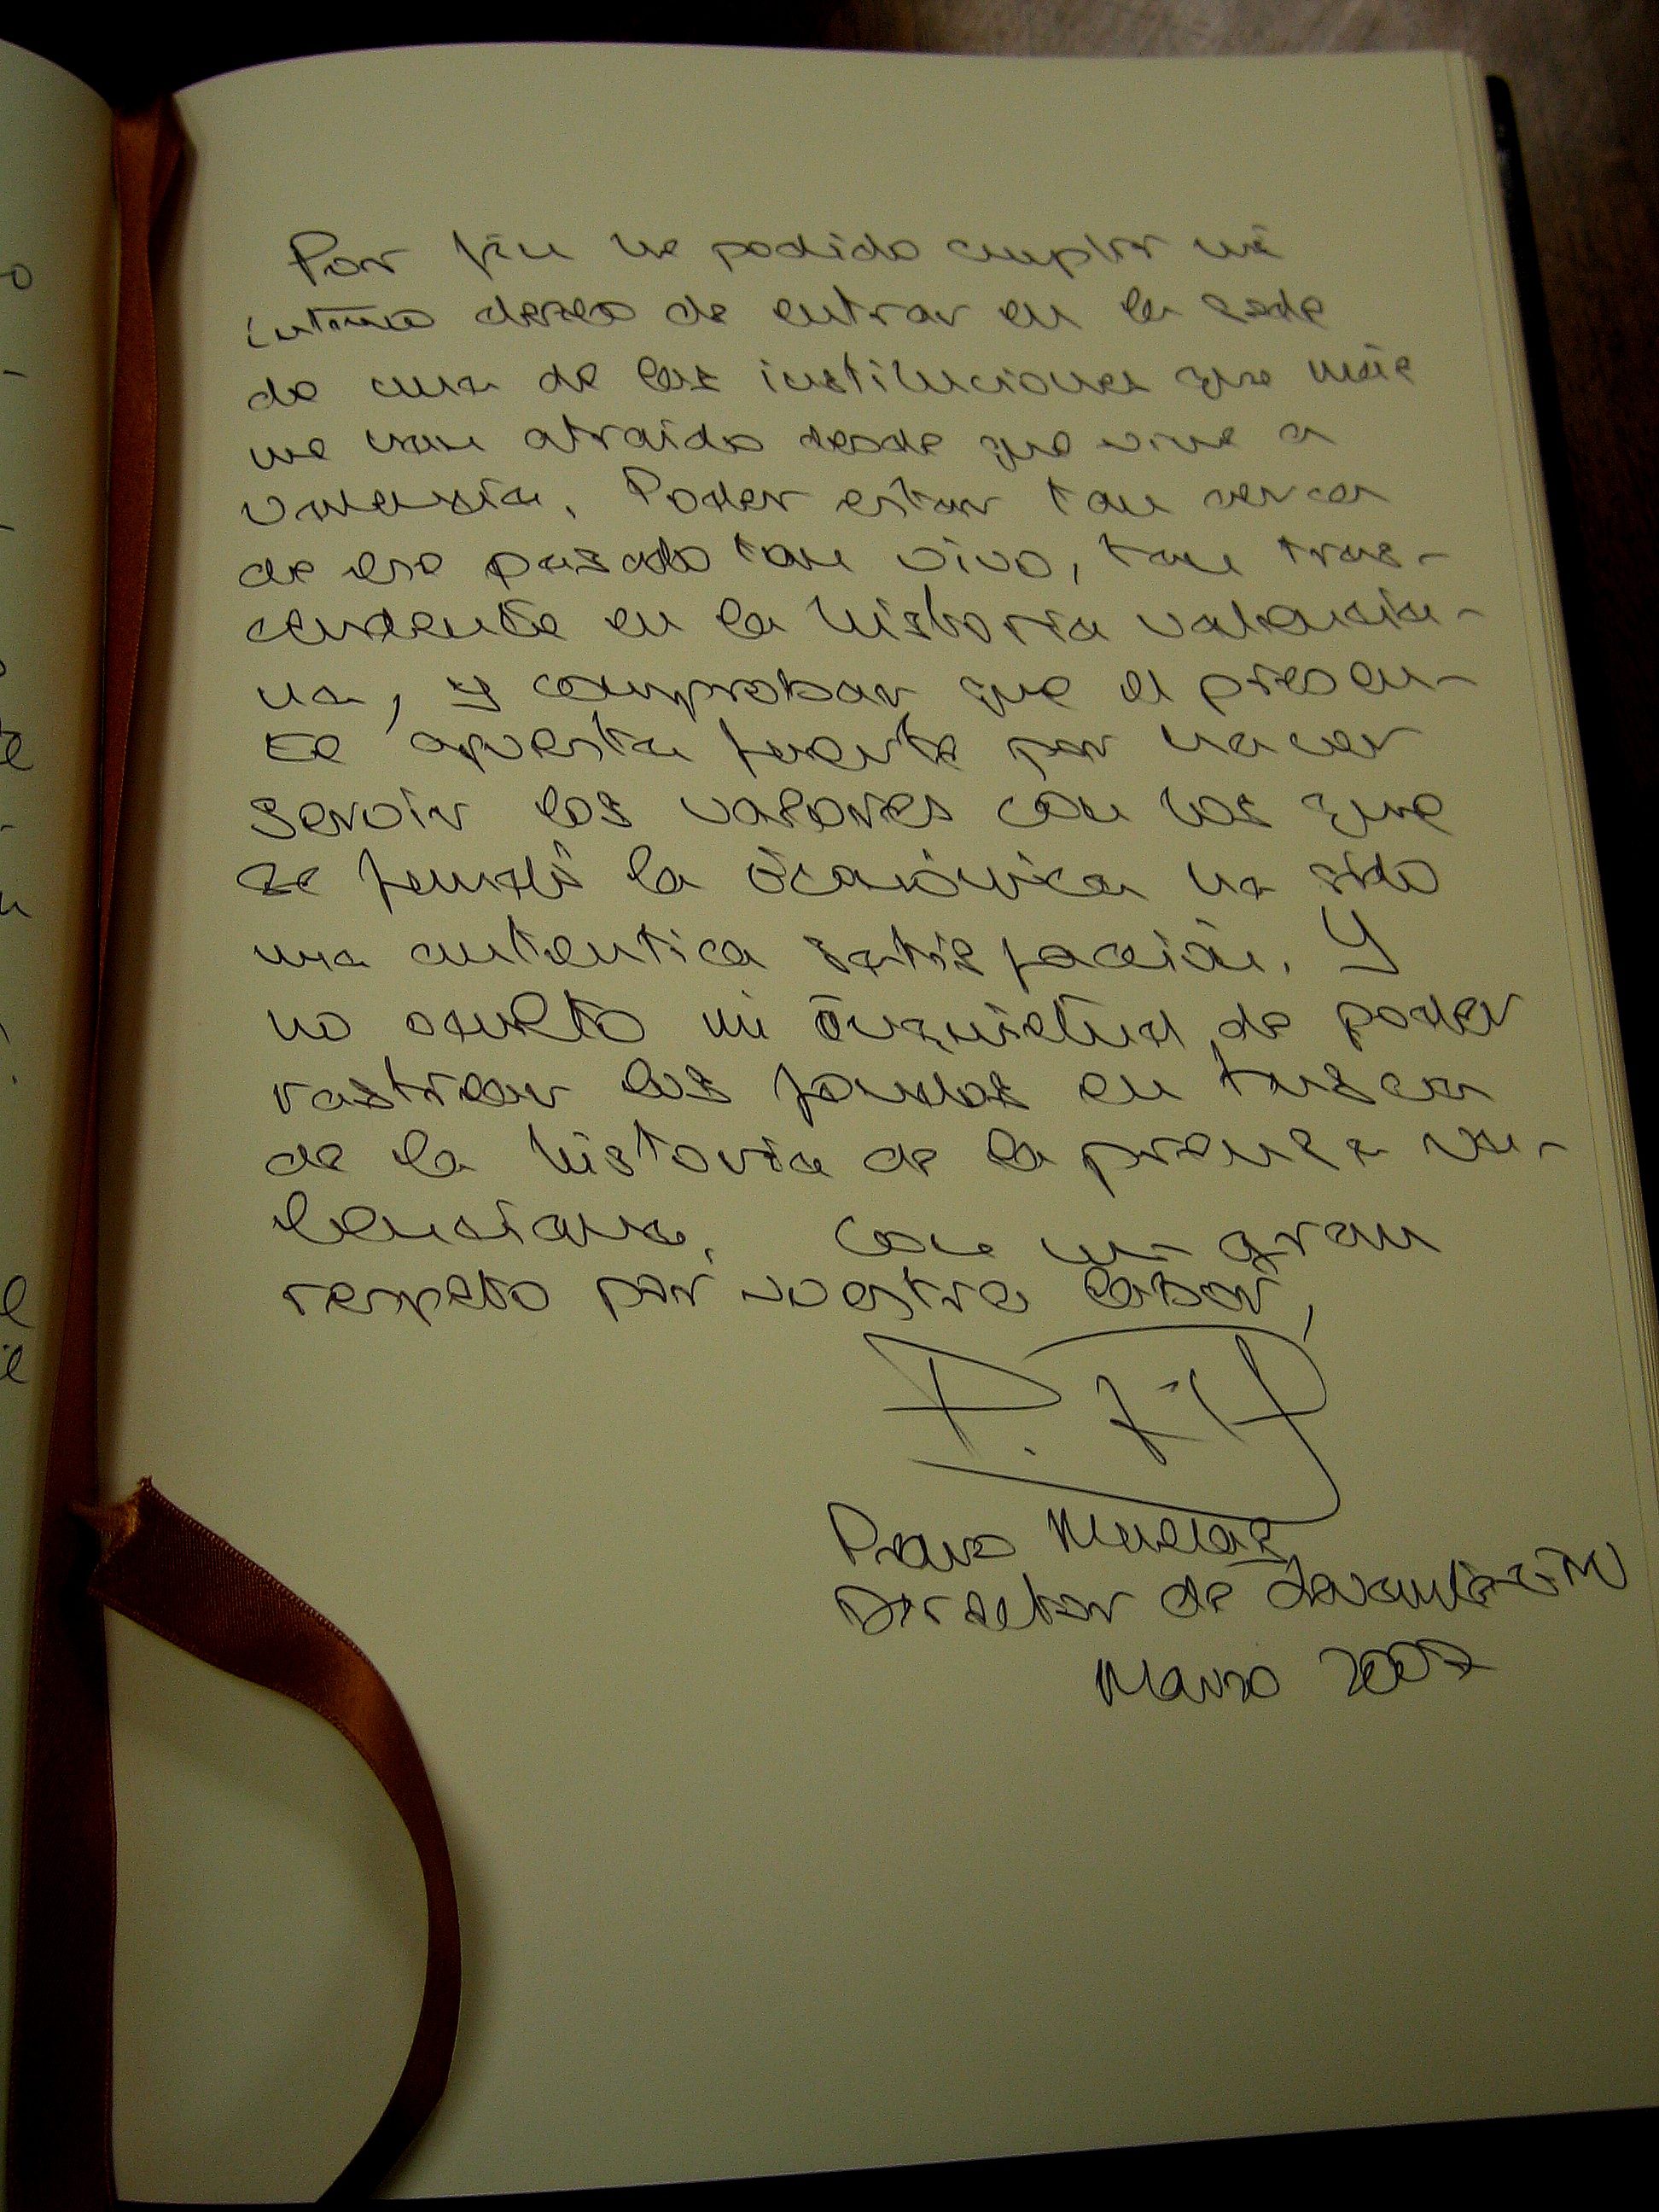 Por fin he podido cumplir mi
íntimo deseo de entrar en la sede
de una de las instituciones que más
me han atraído desde que vine a
Valencia. Poder estar tan cerca
de ese pasado tan vivo, tan tras-
cendente en la historia valencia-
na, y comprobar que el presen-
te apuesta fuerte por hacer
servir los valores con los que
se fundó la Económica ha sido
una autentica satisfacción. Y
no oculto mi inquietud de poder
rastrear los fondos en busca
de la historia de la prensa va-
lenciana. Con un gran
respeto por vuestra labor,
Director de
Marzo 2007